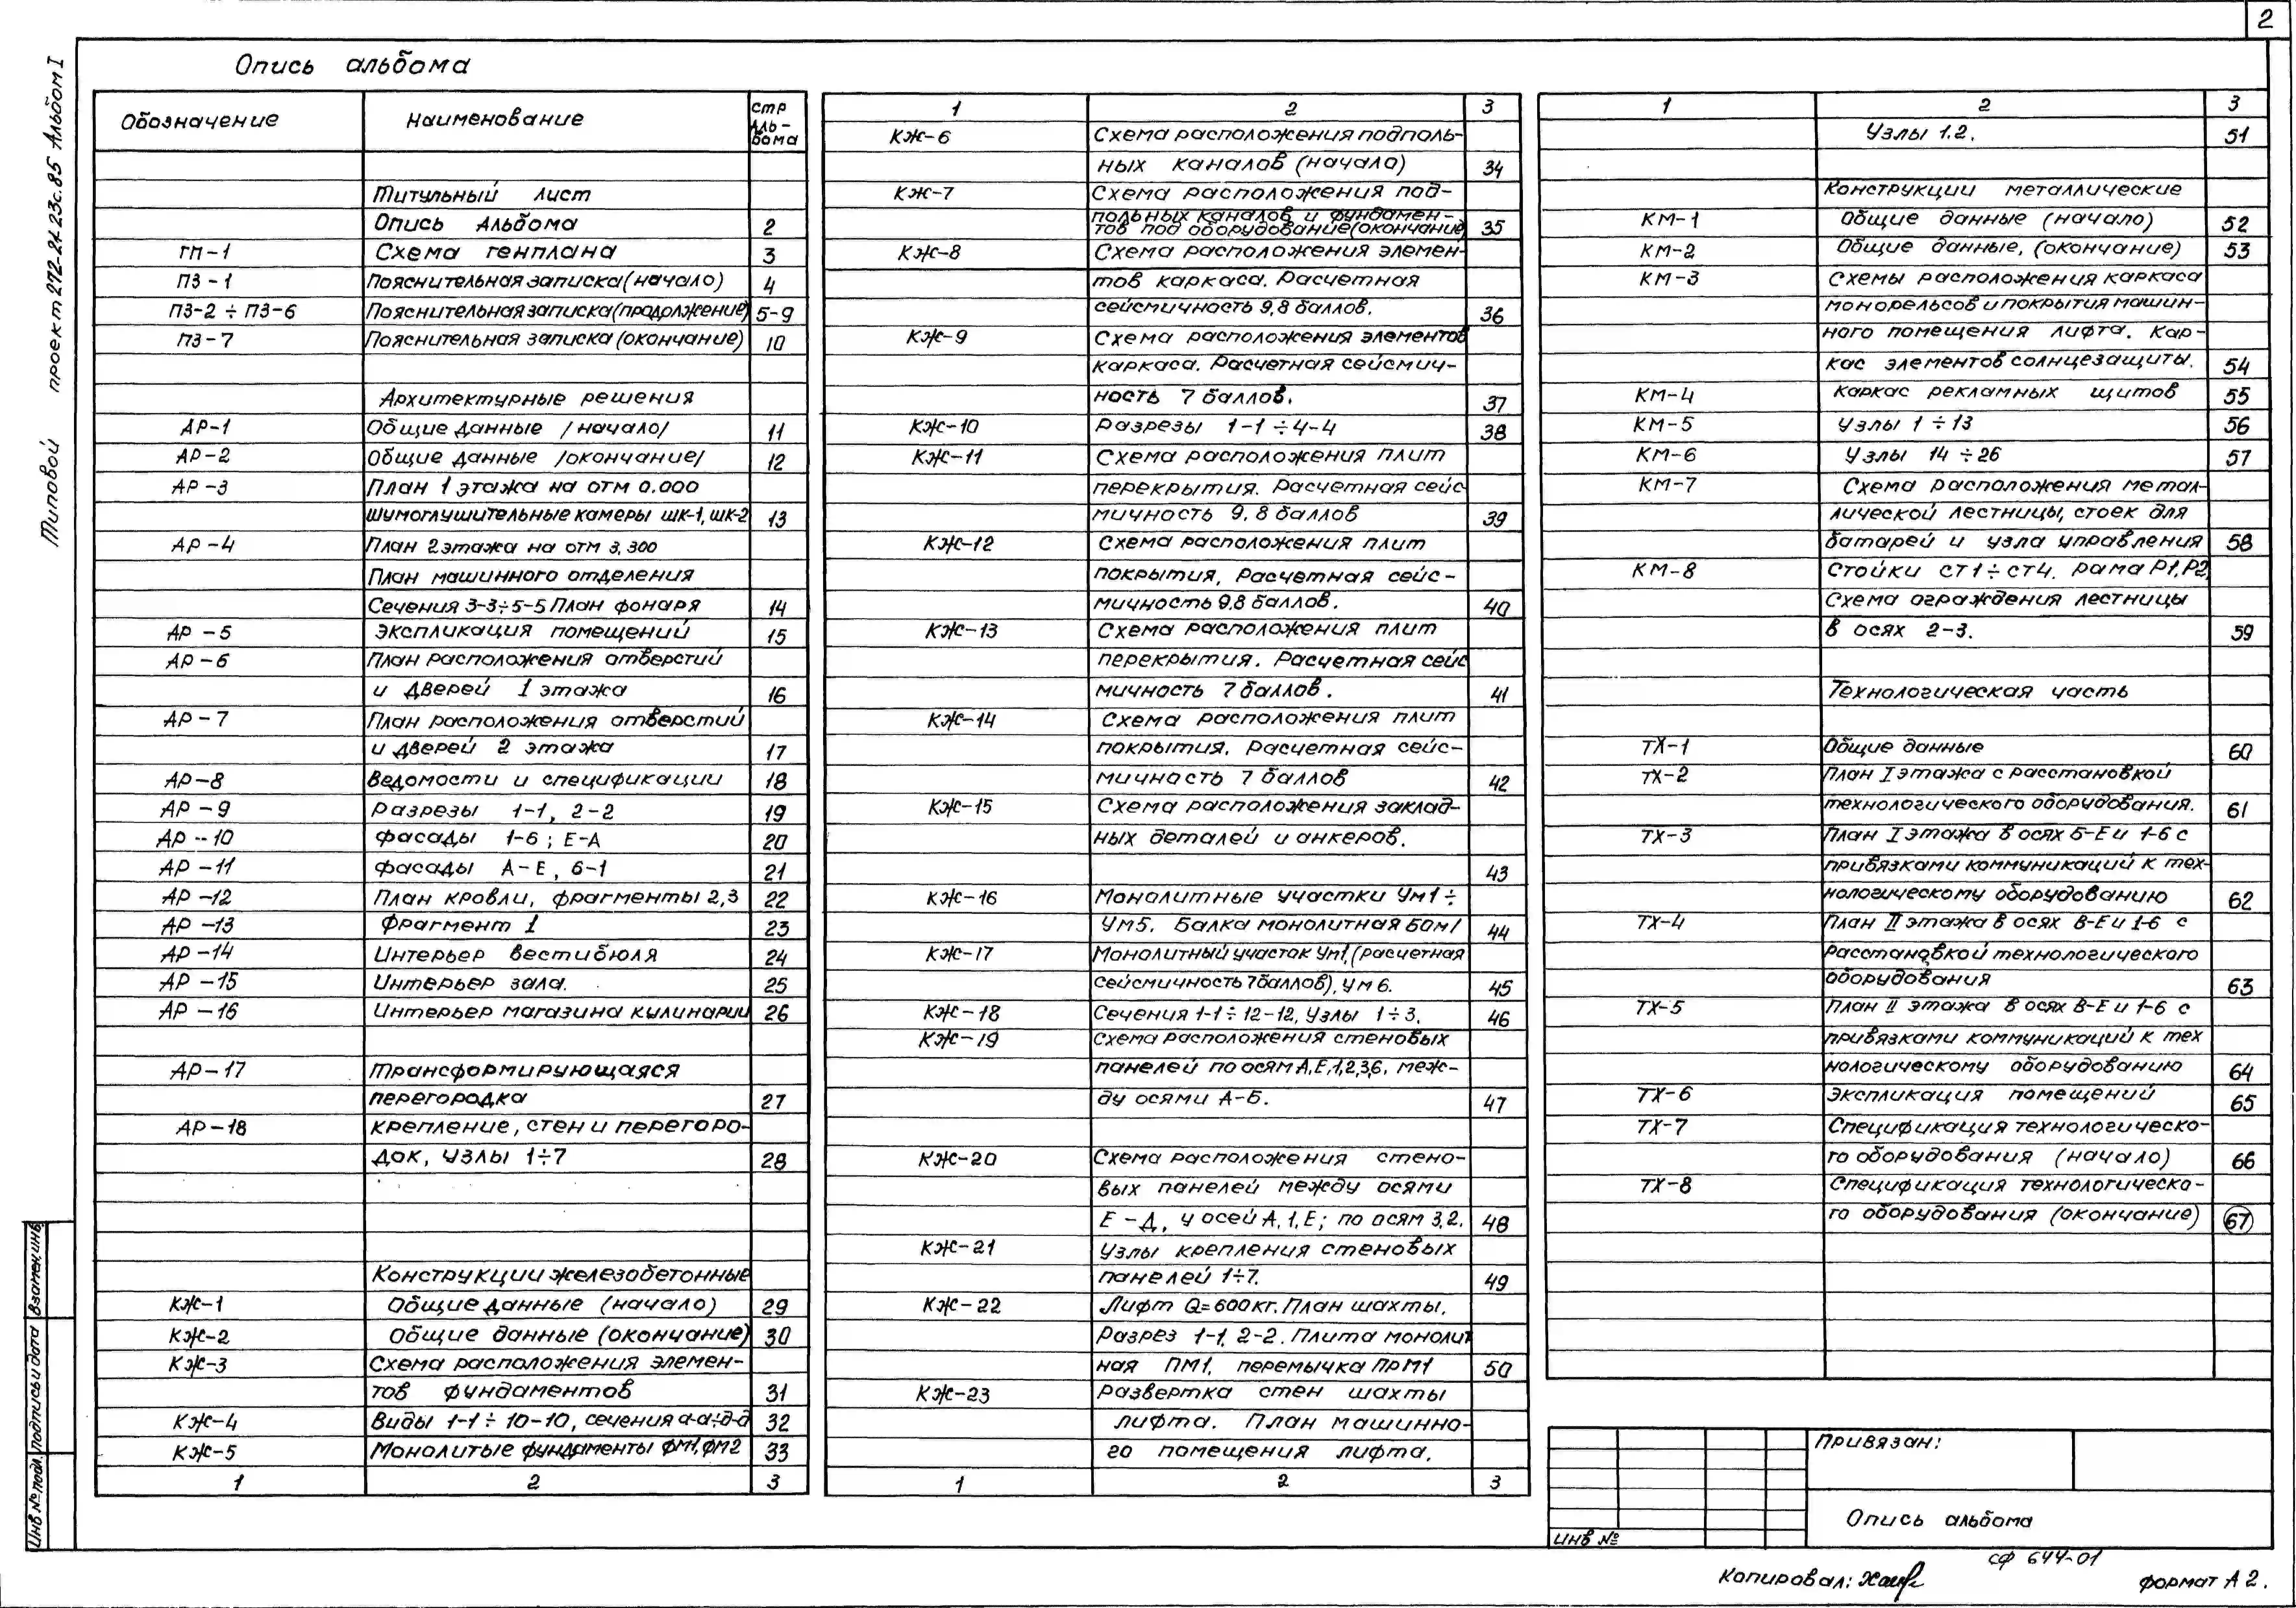 2
Типовой проект 272-24-23с.85 Альбом I
Опись альбома
Обозначение Наименование стр Аль-бома
Титульный лист
Опись Альбома 2
ГП-1 Схема генплана 3
ПЗ-1 Пояснительная записка (начало) 4
ПЗ-2 ÷ ПЗ-6 Пояснительная записка (продолжение) 5-9
ПЗ-7 Пояснительная записка (окончание) 10
Архитектурные решения
АР-1 Общие данные /начало/ 11
АР-2 Общие данные /окончание/ 12
АР-3 План 1 этажа на отм 0.000
Шумоглушительные камеры ШК-1, ШК-2 13
АР-4 План 2 этажа на отм 3.300
План машинного отделения
Сечения 3-3÷5-5 План фонаря 14
АР-5 Экспликация помещений 15
АР-6 План расположения отверстий
и дверей 1 этажа 16
АР-7 План расположения отверстий
и дверей 2 этажа 17
АР-8 Ведомости и спецификации 18
АР-9 Разрезы 1-1, 2-2 19
АР-10 Фасады 1-6; Е-А 20
АР-11 Фасады А-Е, 6-1 21
АР-12 План кровли, фрагменты 2,3 22
АР-13 Фрагмент 1 23
АР-14 Интерьер вестибюля 24
АР-15 Интерьер зала. 25
АР-16 Интерьер магазина кулинарии 26
АР-17 Трансформирующаяся
перегородка 27
АР-18 Крепление, стен и перегоро-
док, узлы 1÷7 28
Конструкции железобетонные
КЖ-1 Общие данные (начало) 29
КЖ-2 Общие данные (окончание) 30
КЖ-3 Схема расположения элемен-
тов фундаментов 31
КЖ-4 Виды 1-1 ÷ 10-10, сечения а-а÷д-д 32
КЖ-5 Монолитые фундаменты ФМ1, ФМ2 33
1 2 3
1 2 3
КЖ-6 Схема расположения подполь-
ных каналов (начало) 34
КЖ-7 Схема расположения под-
польных каналов и фундамен-
тов под оборудование (окончание) 35
КЖ-8 Схема расположения элемен-
тов каркаса. Расчетная
сейсмичность 9,8 баллов. 36
КЖ-9 Схема расположения элементов
каркаса. Расчетная сейсмич-
ность 7 баллов. 37
КЖ-10 Разрезы 1-1 ÷ 4-4 38
КЖ-11 Схема расположения плит
перекрытия. Расчетная сейс
мичность 9,8 баллов 39
КЖ-12 Схема расположения плит
покрытия, Расчетная сейс-
мичность 9.8 баллов. 40
КЖ-13 Схема расположения плит
перекрытия. Расчетная сейс
мичность 7 баллов. 41
КЖ-14 Схема расположения плит
покрытия. Расчетная сейс-
мичность 7 баллов 42
КЖ-15 Схема расположения заклад-
ных деталей и анкеров.
43
КЖ-16 Монолитные участки Ум1 ÷
Ум5. Балка монолитная Бом1 44
КЖ-17 Монолитный участок Ум1, (расчетная
сейсмичность 7 баллов), Ум 6. 45
КЖ-18 Сечения 1-1 ÷ 12-12, Узлы 1÷3. 46
КЖ-19 Схема расположения стеновых
панелей по осям А,Е,1,2,3,6, меж-
ду осями А-Б. 47
КЖ-20 Схема расположения стено-
вых панелей между осями
Е-Д, у осей А,1,Е; по осям 3,2. 48
КЖ-21 Узлы крепления стеновых
панелей 1÷7. 49
КЖ-22 Лифт Q=600кг. План шахты.
Разрез 1-1, 2-2. Плита монолит
ная ПМ1, перемычка ПрМ1 50
КЖ-23 Развертка стен шахты
лифта. План машинно-
го помещения лифта.
1 2 3
1 2 3
Узлы 1.2. 51
Конструкции металлические
КМ-1 Общие данные (начало) 52
КМ-2 Общие данные, (окончание) 53
КМ-3 Схемы расположения каркаса
монорельсов и покрытия машин-
ного помещения лифта. Кар-
кас элементов солнцезащиты. 54
КМ-4 Каркас рекламных щитов 55
КМ-5 Узлы 1 ÷ 13 56
КМ-6 Узлы 14 ÷ 26 57
КМ-7 Схема расположения метал-
лической лестницы, стоек для
батарей и узла управления 58
КМ-8 Стойки СТ1÷СТ4. рама Р1,Р2,
Схема ограждения лестницы
в осях 2-3. 59
Технологическая часть
ТХ-1 Общие данные 60
ТХ-2 План I этажа с расстановкой
технологического оборудования. 61
ТХ-3 План I этажа в осях Б-Е и 1-6 с
привязками коммуникаций к тех-
нологическому оборудованию 62
ТХ-4 План II этажа в осях В-Е и 1-6 с
расстановкой технологического
оборудования 63
ТХ-5 План II этажа в осях В-Е и 1-6 с
привязками коммуникаций к тех
нологическому оборудованию 64
ТХ-6 Экспликация помещений 65
ТХ-7 Спецификация технологическо-
го оборудования (начало) 66
ТХ-8 Спецификация технологическо-
го оборудования (окончание) 67
Привязан:
Опись альбома
Инв №
СФ 644-01
Копировал:
формат А2.
Взамен.инв.
Подпись и дата
Инв № подл.